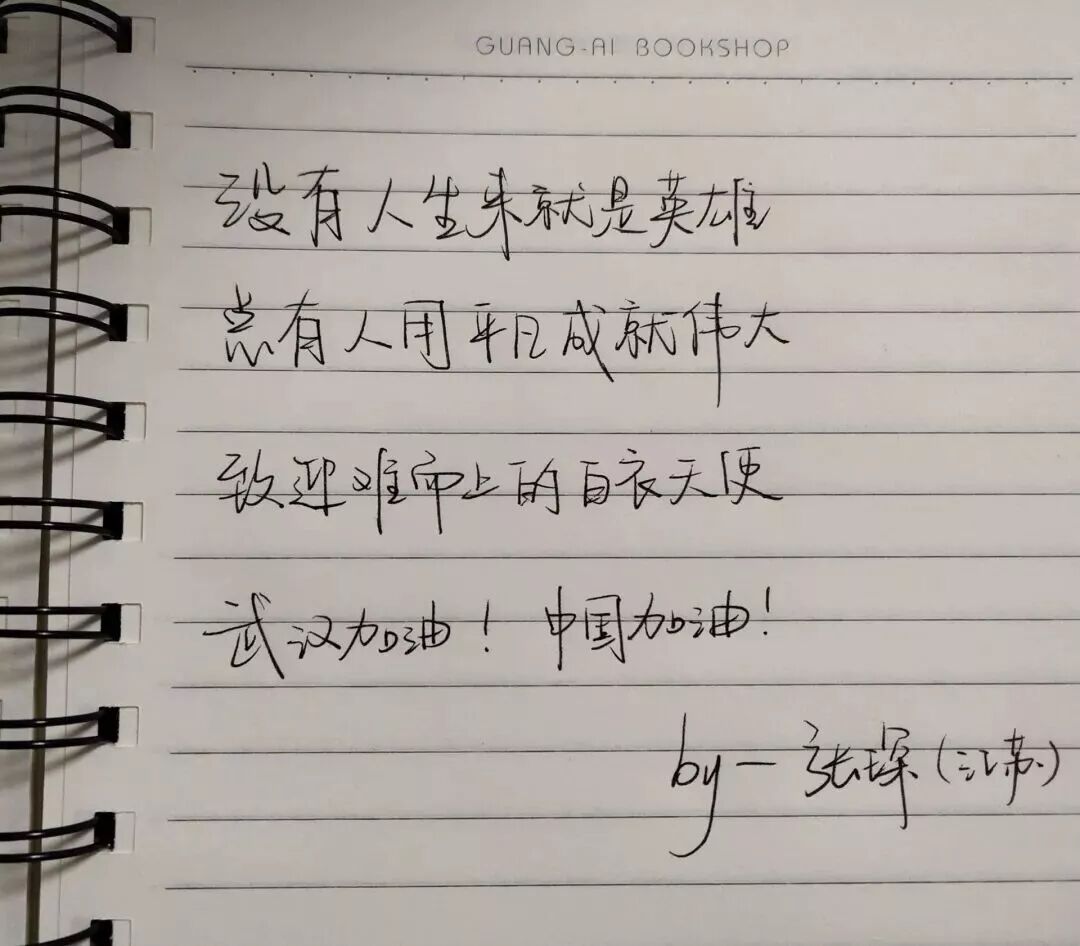 GUANG-AI BOOKSHOP
没有人生来就是英雄
总有人用平凡成就伟大
致迎难而上的白衣天使
武汉加油！中国加油！
by—张琛（江苏）